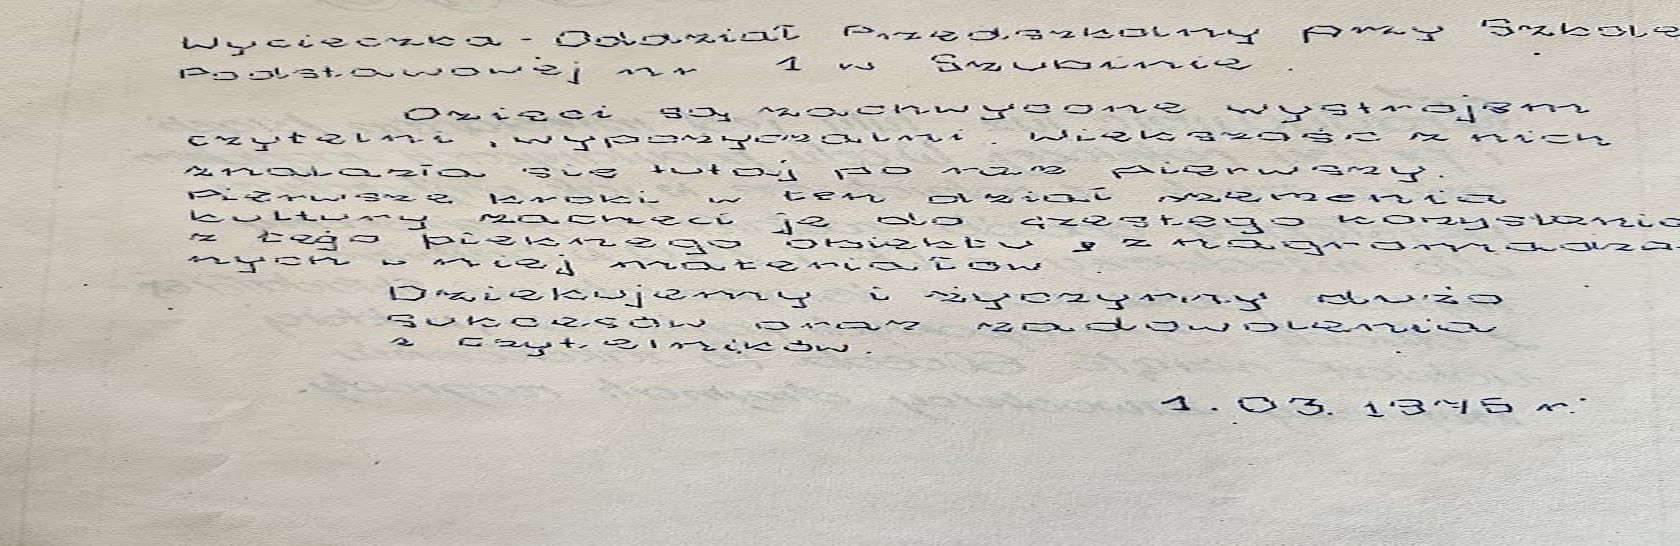 Wycieczka - Oddział Przedszkolny przy Szkole
Podstawowej nr 1 w Szubinie.
Dzieci są zachwycone wystrojem
czytelni, wypożyczalni. Większość z nich
znalazła się tutaj po raz pierwszy.
Pierwsze kroki w ten dział
kultury zachęci je do częstego korzystania
z tego pięknego obiektu z nagromadzo
nych w niej materiałów.
Dziękujemy i życzymy dużo
sukcesów oraz zadowolenia
z czytelników.
1.03.1975 r.